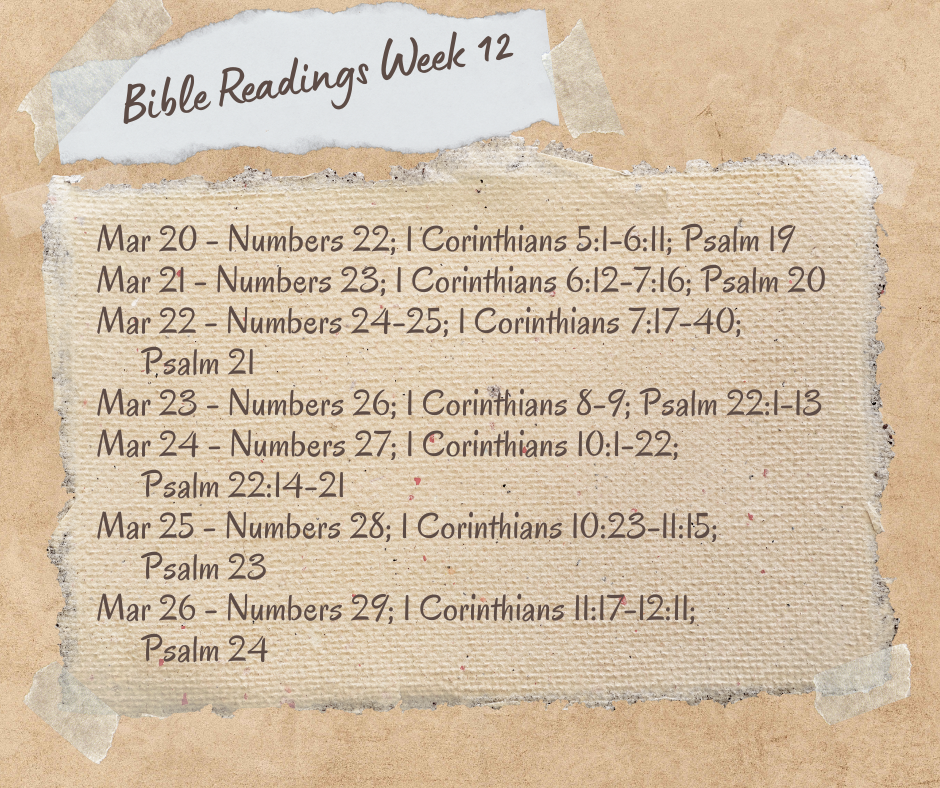 Bible Readings Week 12
Mar 20 - Numbers 22; 1 Corinthians 5:1-6:11; Psalm 19
Mar 21 - Numbers 23; 1 Corinthians 6:12-7:16; Psalm 20
Mar 22 - Numbers 24-25; 1 Corinthians 7:17-40;
Psalm 21
Mar 23 - Numbers 26; 1 Corinthians 8-9; Psalm 22:1-13
Mar 24 - Numbers 27; 1 Corinthians 10:1-22;
Psalm 22:14-21
Mar 25 - Numbers 28; 1 Corinthians 10:23-11:15;
Psalm 23
Mar 26 - Numbers 29; 1 Corinthians 11:17-12:11;
Psalm 24